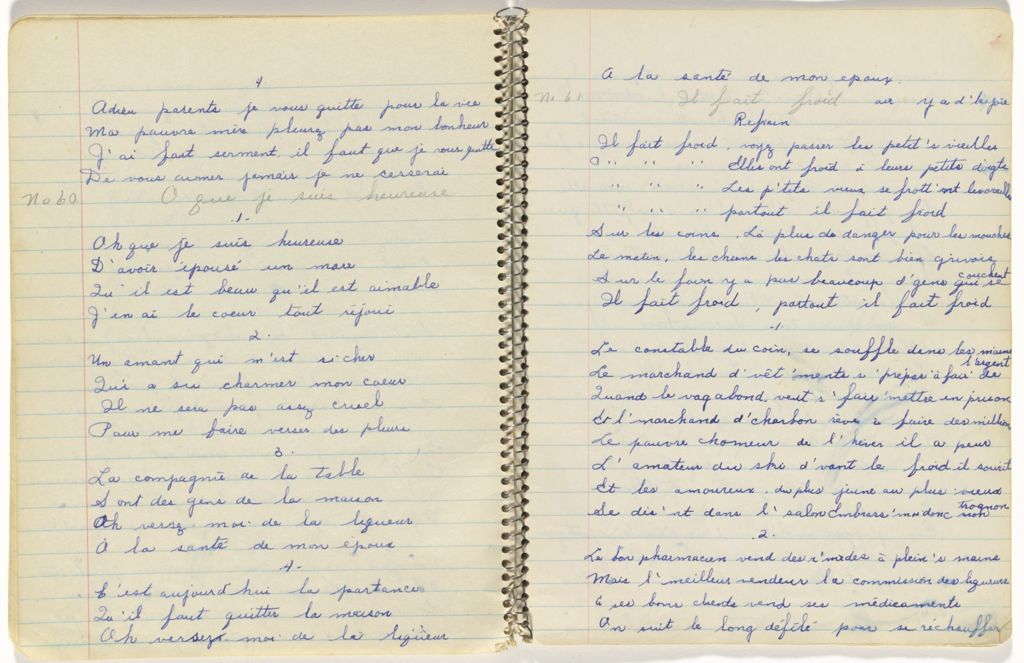 4
Adieu parents je vous quitte pour la vie
Ma pauvre mère pleurez pas mon bonheur
J'ai fait serment, il faut que je vous quitte
De vous aimer jamais je ne cesserai
No 60 O que je suis heureuse
.1.
Oh que je suis heureuse
D'avoir épousé un mari
Qu'il est beau qu'il est aimable
J'en ai le coeur tout réjoui
2.
Un amant qui m'est si cher
Qui a su charmer mon coeur
Il ne sera pas assez cruel
Pour me faire verser des pleurs
3.
La compagnie de la table
Sont des gens de la maison
Ah versez-moi de la liqueur
À la santé de mon époux
.4.
C'est aujourd'hui la partance
Qu'il faut quitter la maison
Oh versez-moi de la liqueur
A la santé de mon epoux.
No 61 Il fait froid air y a d'la joie
Refrain
Il fait froid, voyez passer les petit's vieilles
" " " " Elles ont froid à leurs petits doigts
" " " Les p'tits vieux se frott'nt les oreilles
" " " partout il fait froid
Sur les coins. Là plus de danger pour les mouches
Le matin, les chiens les chats sont bien grivois
Sur le foin y a pas beaucoup d'gens qui se couchent
Il fait froid, partout il fait froid
.1.
Le constable du coin, se souffle dans les mains
Le marchand d'vêt'ments s'prépar' à fair' de l'argent
Quand le vagabond, veut s'fair' mettre en prison
Et l'marchand d'charbon rêve à faire des millions
Le pauvre chomeur de l'hiver il a peur
L'amateur du ski d'vant le froid il sourit
Et les amoureux, du plus jeune au plus vieux
Se dis'nt dans l'salon Embrass' moi donc mon trognon
.2.
Le bon pharmacien vend des r'mèdes à plein's mains
Mais l'meilleur vendeur la commission des liqueurs
à ses bons clients vend ses médicaments
On suit le long défilé pour se réchauffer